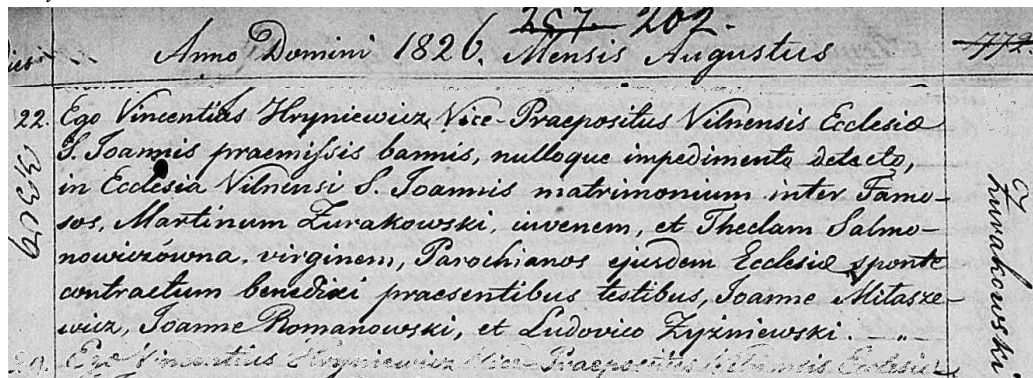 257 202.
Anno Domini 1826. Mensis Augustus
772
22. Ego Vincentius Hryniewicz Vice-Praepositus Vilnensis Ecclesiæ
S. Joannis praemissis bannis, nulloque impedimento detecto,
in Ecclesia Vilnensi S. Joannis matrimonium inter Famo-
sos, Martinum Zurakowski, iuvenem, et Theclam Salmo-
nowiczówna, virginem, Parochianos ejusdem Ecclesiæ sponte
contractum benedixi praesentibus testibus, Joanne Mitasze-
wicz, Joanne Romanowski, et Ludovico Zyźniewski.
Ego Vincentius Hryniewicz Vice-Praepositus Vilnensis Ecclesiæ
Zurakowski